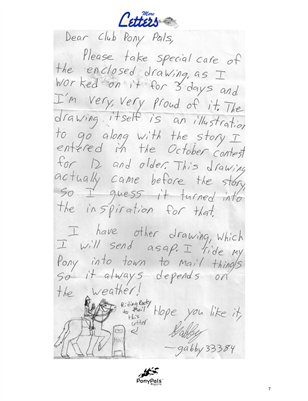 More
Letters
Dear Club Pony Pals,
Please take special care of
the enclosed drawing, as I
worked on it for 3 days and
I'm very, very proud of it. The
drawing itself is an illustration
to go along with the story I
entered in the October contest
for 12 and older. This drawing
actually came before the story
so I guess it turned into
the inspiration for that.
I have other drawing, which
I will send asap. I ride my
Pony into town to mail things
so it always depends on
the weather!
to Mail
this
letter
Hope you like it,
Gabby
-gabby33384
PonyPals
7